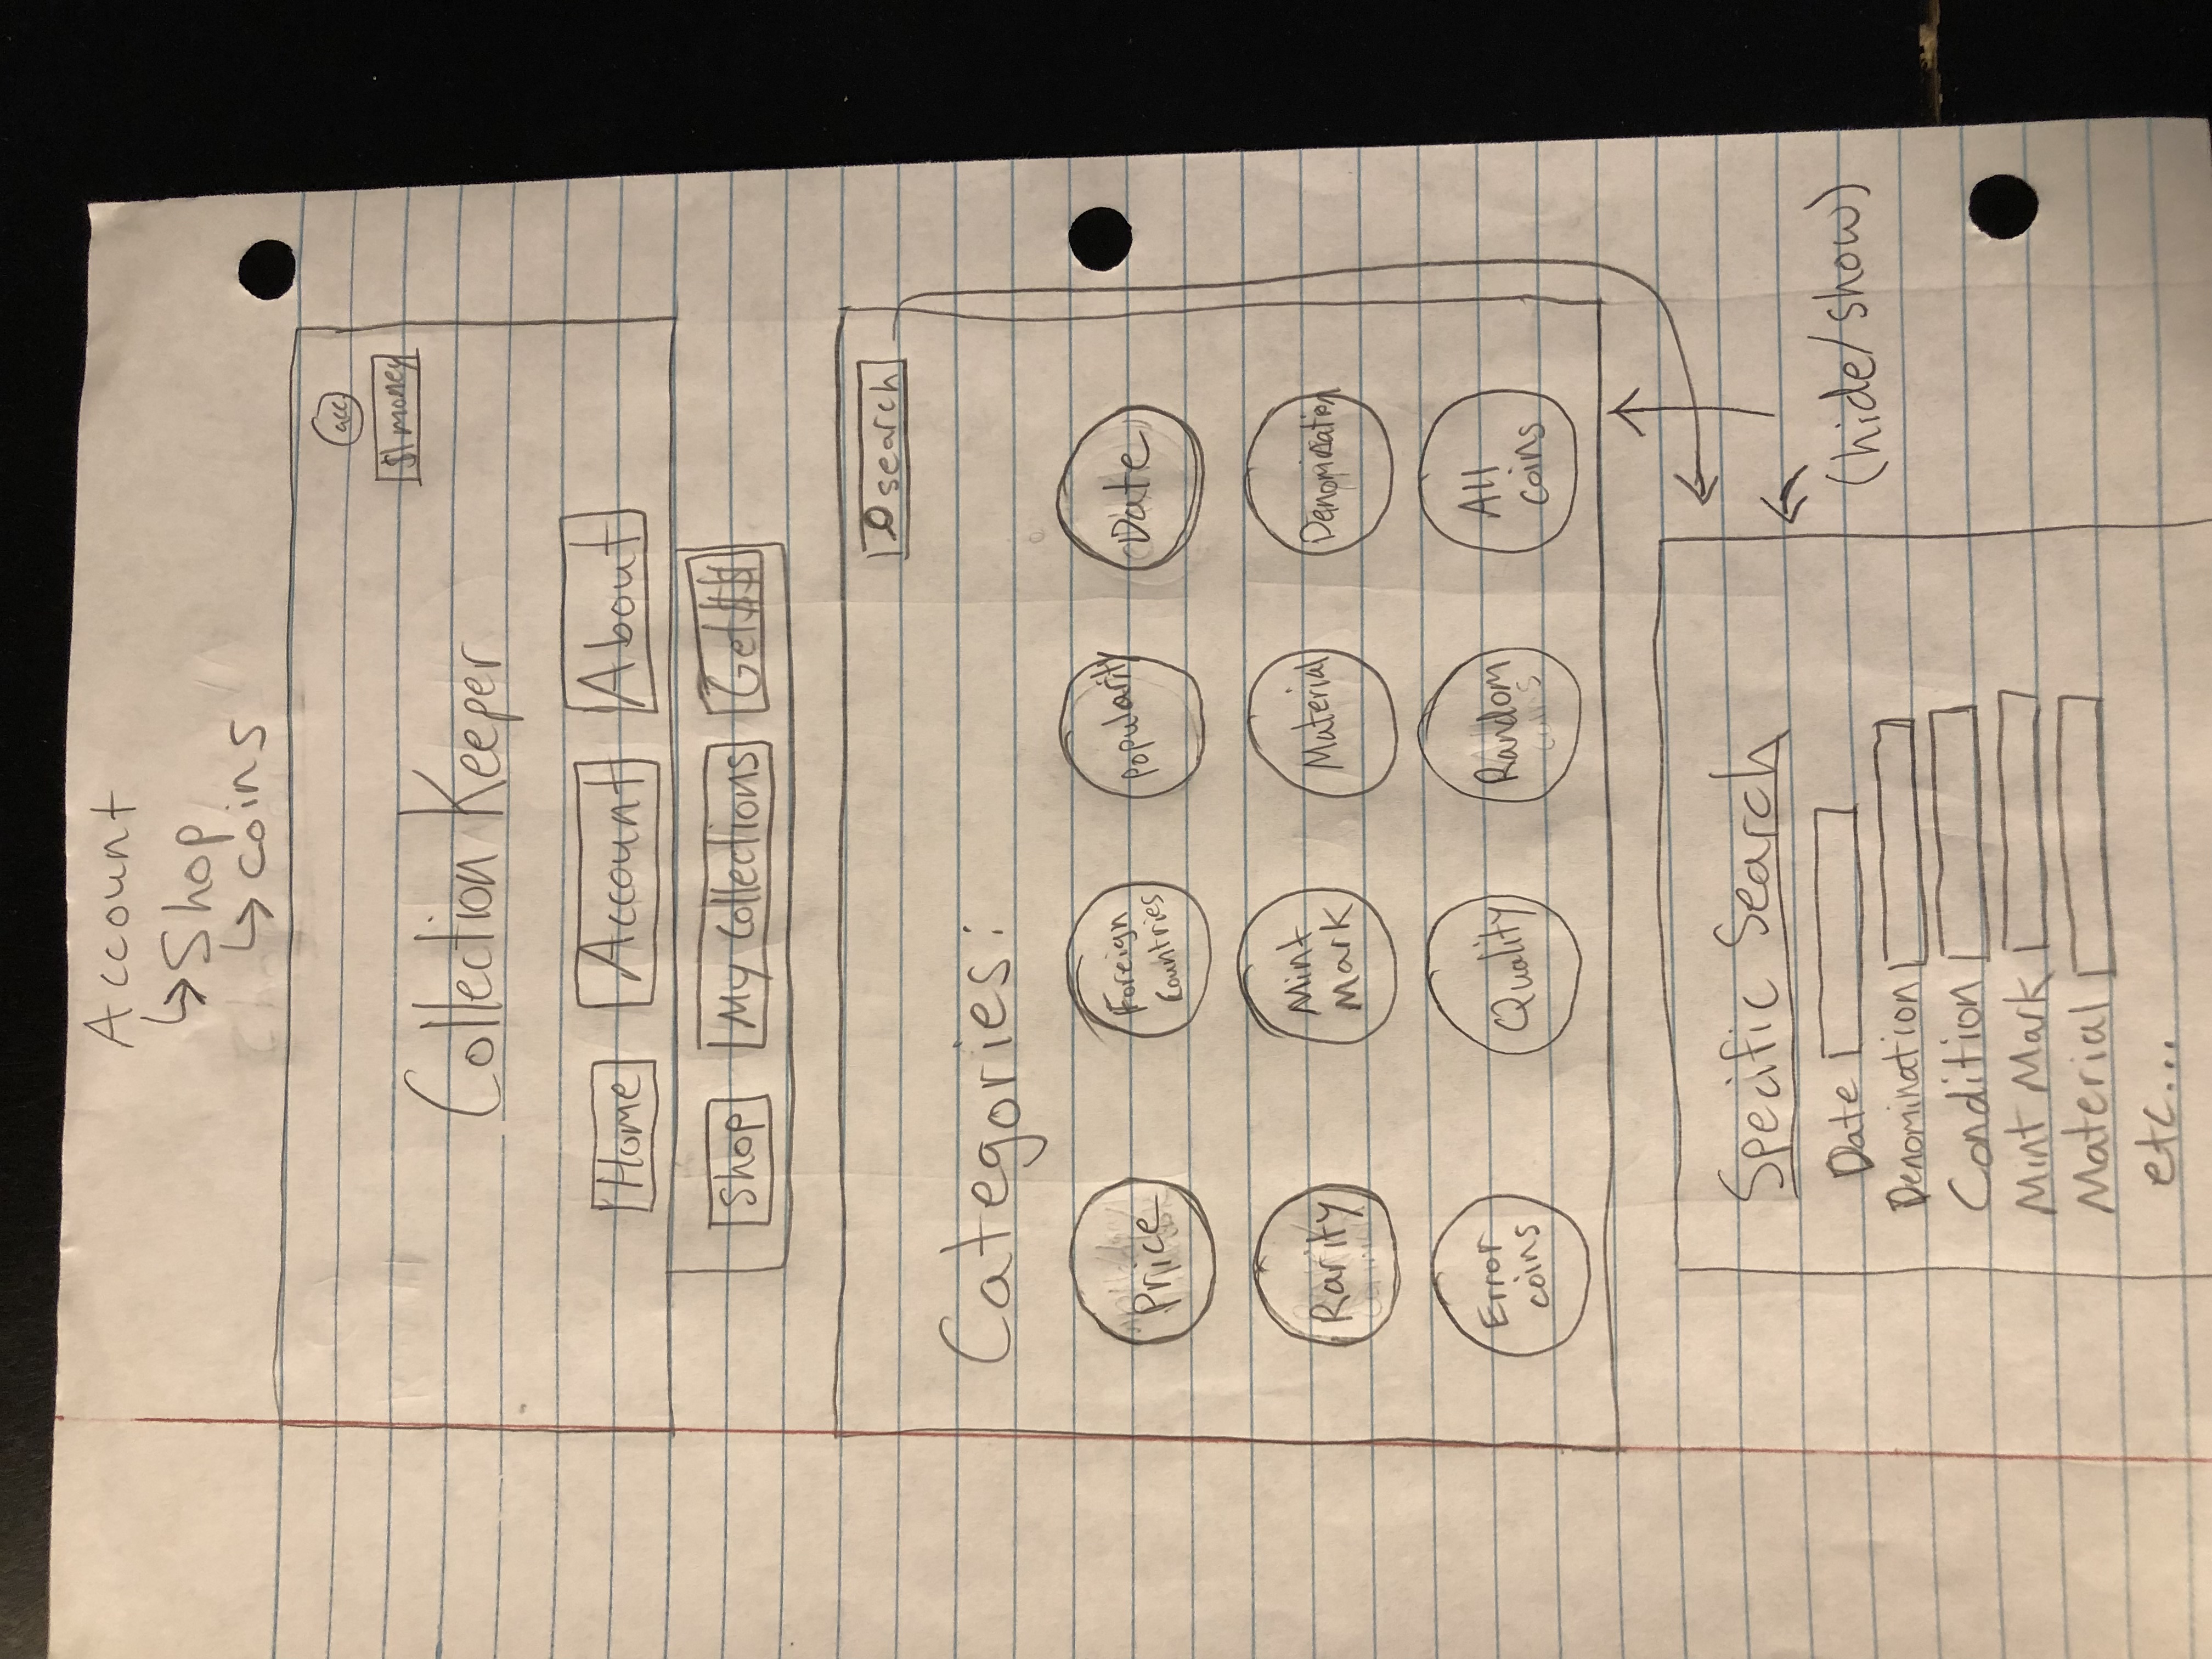 Account
↳ Shop
↳ coins
acc.
$| money
Collection Keeper
Home Account About
Shop My Collections Get $$
search
Categories:
Price Foreign Countries Popularity Date
Rarity Mint Mark Material Denomination
Error coins Quality Random All coins
Specific Search
Date
Denomination
(hide/show)
Condition
Mint Mark
Material
etc...